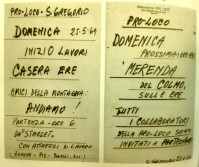 PRO-LOCO - S. GREGORIO
DOMENICA 25-5-69
INIZIO LAVORI
CASERA ERE
AMICI DELLA MONTAGNA:
ANDIAMO!
PARTENZA - ORE 6
DA "STAOLET"
CON ATTREZZI DI LAVORO
PRO-LOCO
DOMENICA
PROSSIMA
MERENDA
DEL COLMO,
SULLE ERE
TUTTI
I COLLABORATORI
DELLA PRO-LOCO SONO
INVITATI A PARTECIPARE